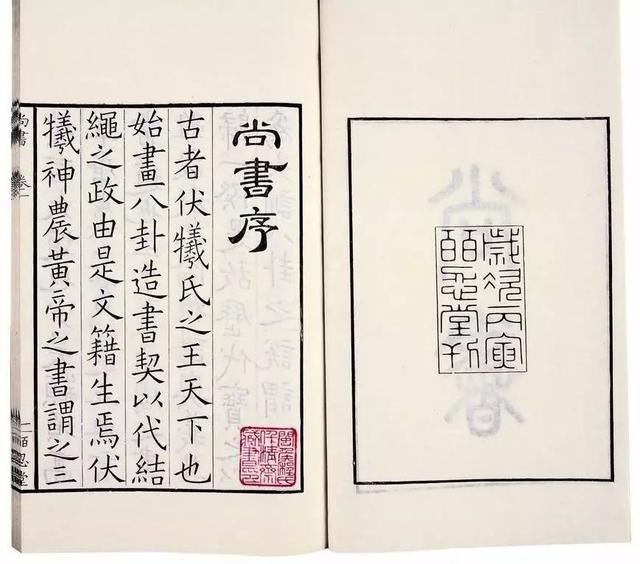 歲次丙寅
皕忍堂刊
尚書序
古者伏犧氏之王天下也
始畫八卦造書契以代結
繩之政由是文籍生焉伏
犧神農黃帝之書謂之三
尚書 卷一
皕忍堂